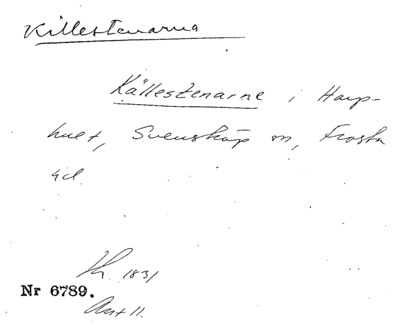 Killestenarna
Källestenarne i Harp-
huet, Svensköp sn, Frosta
hd
1831
Nr 6789.
Ant 11.